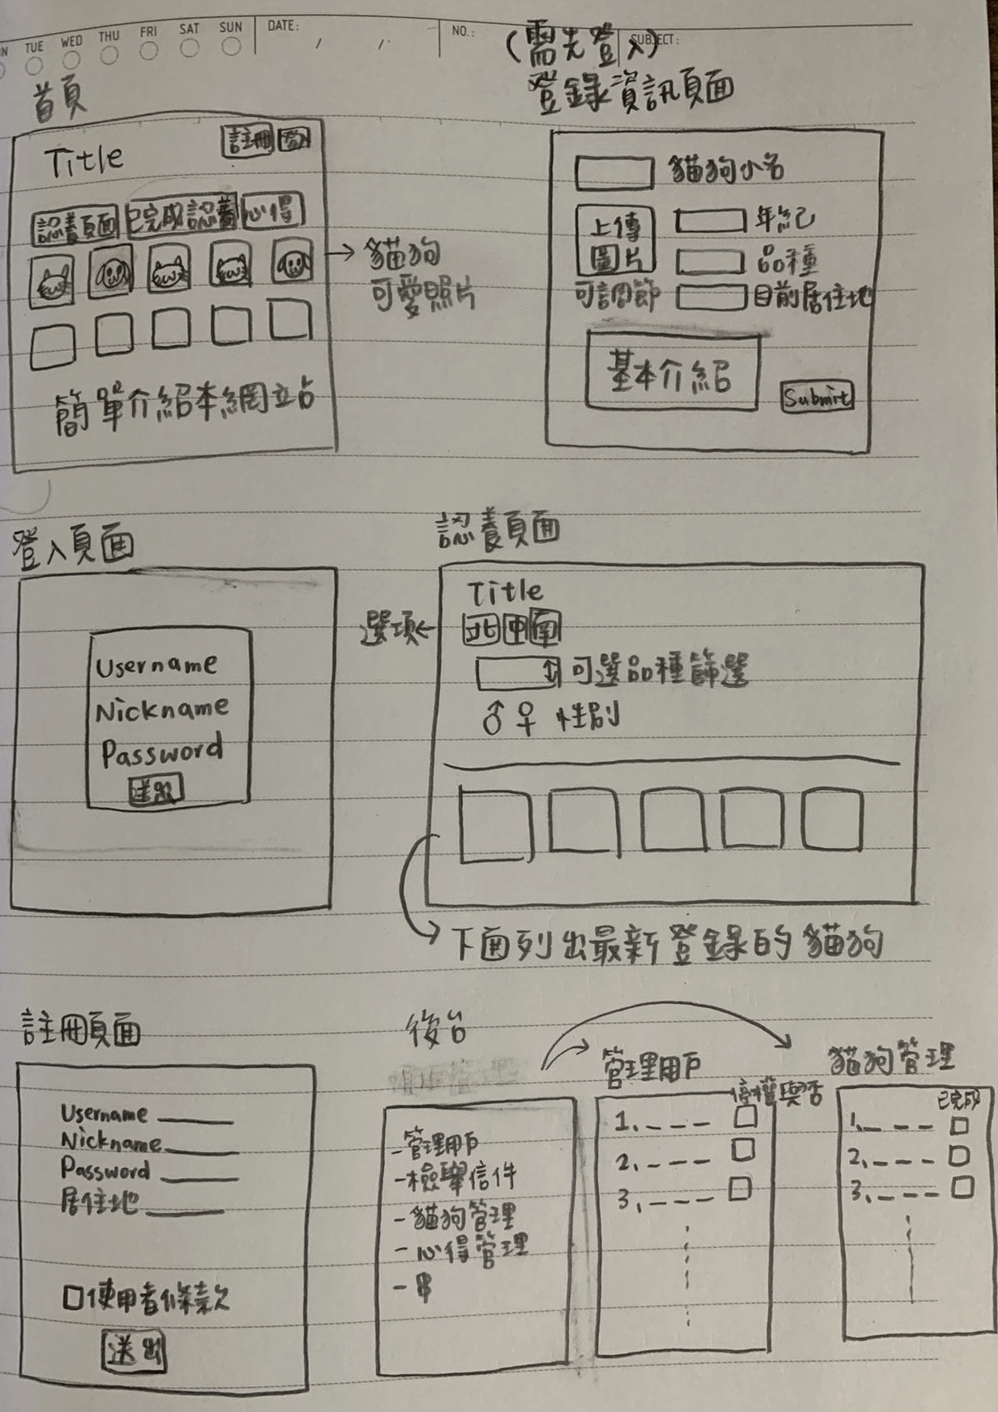 TUE WED THU FRI SAT SUN DATE: / / NO.: SUBJECT:
(需先登入)
首頁
登錄資訊頁面
Title
註冊
登入
認養頁面
已完成認養
心得
→貓狗
可愛照片
簡單介紹本網站
貓狗小名
上傳
圖片
可調節
年紀
品種
目前居住地
基本介紹
Submit
登入頁面
Username
Nickname
Password
送出
認養頁面
Title
選項←
北
中
南
可選品種篩選
♂ ♀ 性別
下面列出最新登錄的貓狗
註冊頁面
Username
Nickname
Password
居住地
使用者條款
送出
後台
-管理用戶
-檢舉信件
-貓狗管理
-心得管理
管理用戶
停權與否
1.
2.
3.
貓狗管理
已完成
1.
2.
3.